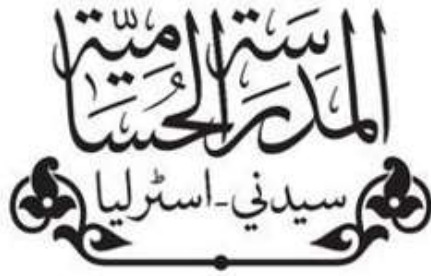 المَدرَسَة الحُسَامِيَّة
سيدني-اسٹرليا